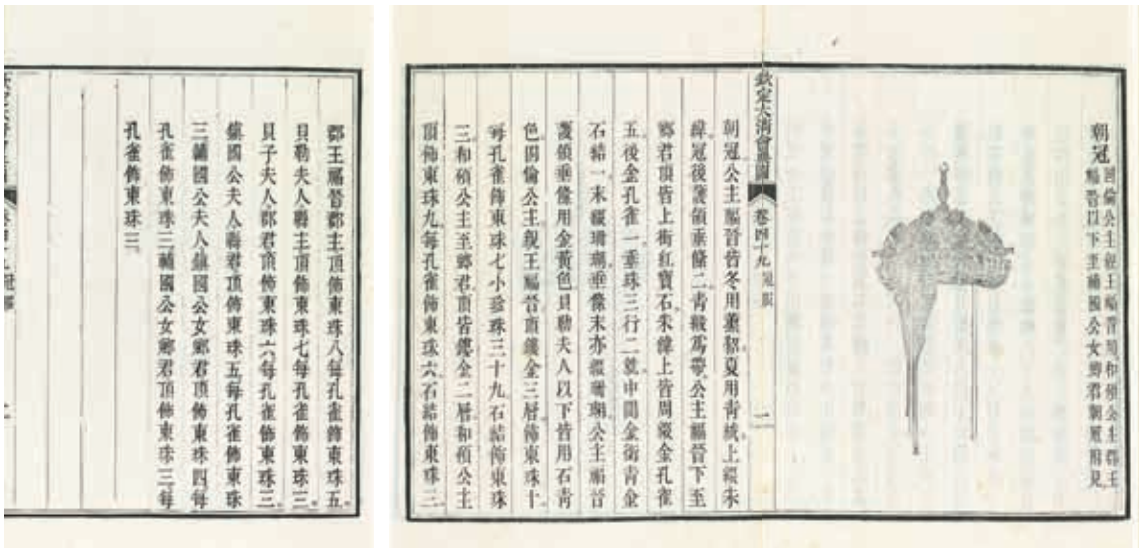 朝冠
固倫公主親王福晉同和碩公主郡王
福晉以下至輔國公女鄉君朝冠附見
欽定大清會典圖 卷四十九 冠服 二
朝冠公主福晉皆冬用薰貂夏用青絨上綴朱
緯冠後護領垂絛二青緞為帶公主福晉下至
鄉君頂皆上銜紅寶石朱緯上皆周綴金孔雀
五後金孔雀一垂珠三行二就中間金銜青金
石結一末綴珊瑚垂絛末亦綴珊瑚公主福晉
護領垂絛用金黃色貝勒夫人以下皆用石青
色固倫公主親王福晉頂鏤金三層飾東珠十
每孔雀飾東珠七小珍珠三十九石結飾東珠
三和碩公主至鄉君頂皆鏤金二層和碩公主
頂飾東珠九每孔雀飾東珠六石結飾東珠三
郡王福晉郡主頂飾東珠八每孔雀飾東珠五
貝勒夫人縣主頂飾東珠七每孔雀飾東珠三
貝子夫人郡君頂飾東珠六每孔雀飾東珠三
鎮國公夫人縣君頂飾東珠五每孔雀飾東珠
三輔國公夫人鎮國公女鄉君頂飾東珠四每
孔雀飾東珠三輔國公女鄉君頂飾東珠三每
孔雀飾東珠三